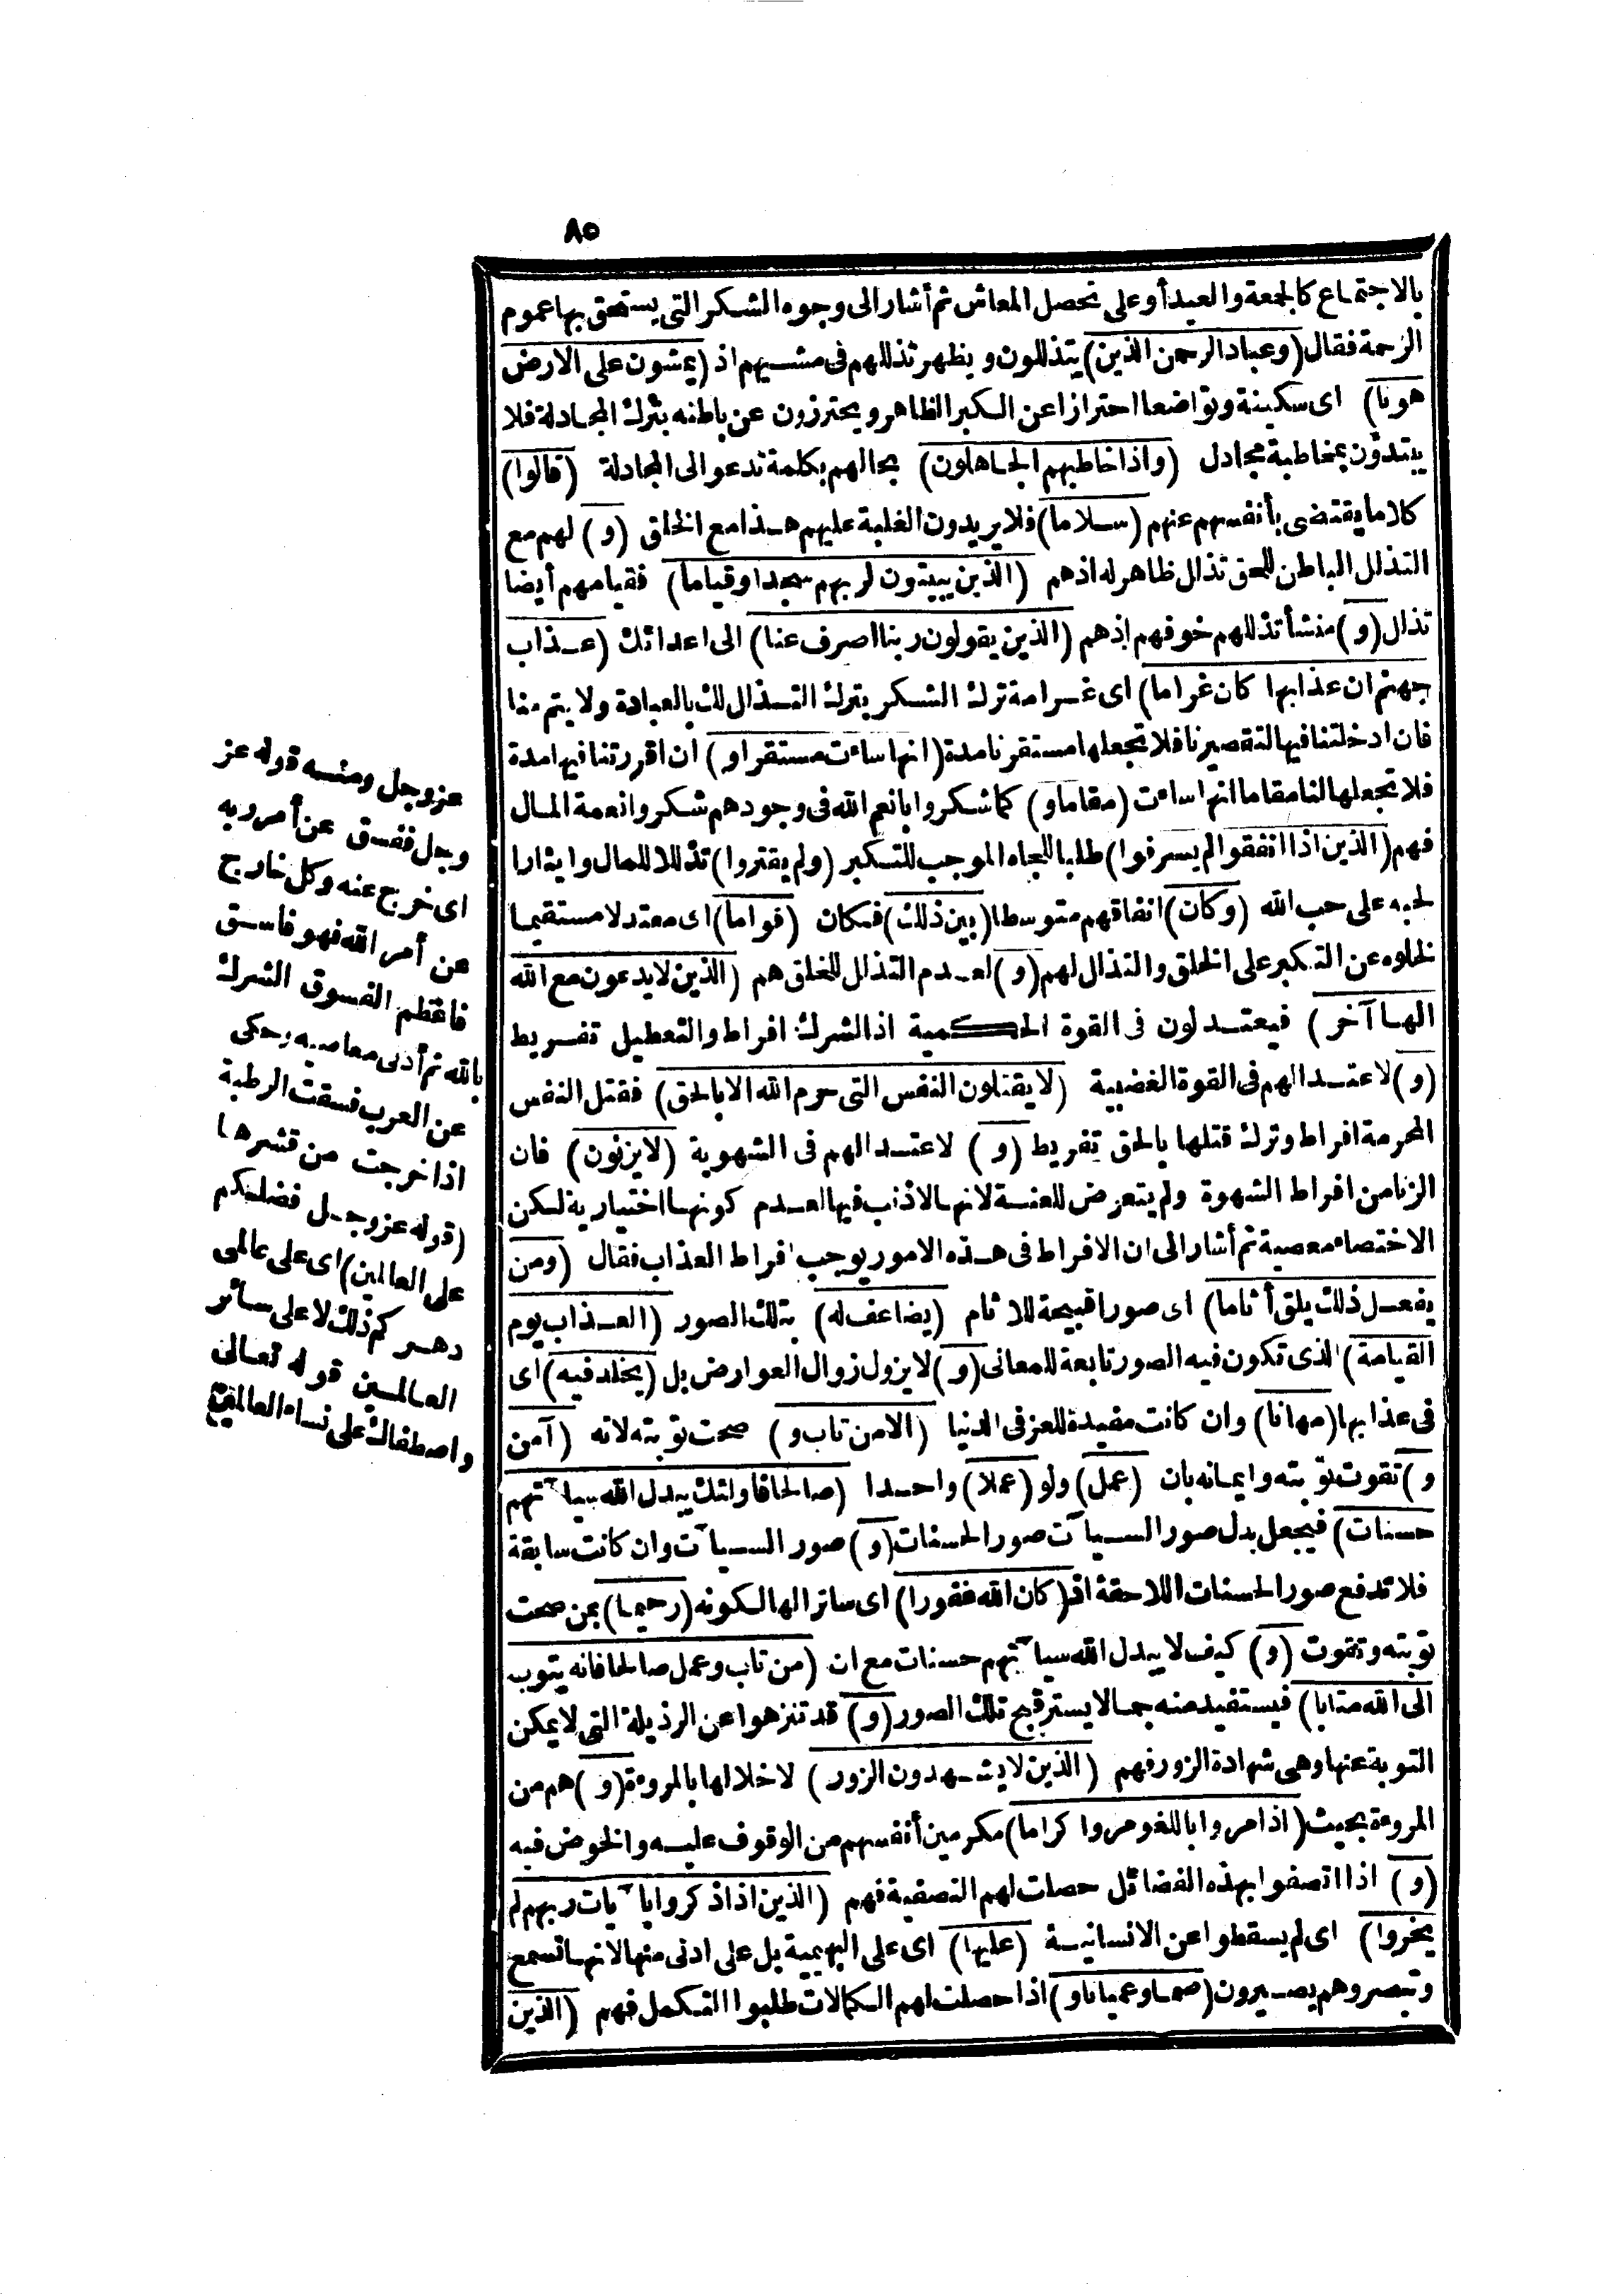 ٨٥
بالاجتماع كالجمعة والعيد أو على تحصل المعاش ثم أشار الى وجوه الشكر التى يستحق بها عموم
الرحمة فقال (وعباد الرحمن الذين) يتذللون ويظهر تذللهم فى مشيهم اذ (يمشون على الارض
هونا) اى سكينة وتواضعا احترازا عن الكبر الظاهر ويحترزون عن باطنه بترك المجادلة فلا
يبتدؤن بمخاطبة مجادل (واذا خاطبهم الجاهلون) بجالهم بكلمة تدعو الى المجادلة (قالوا)
كلاما يقتضى بأنفسهم عنهم (سلاما) فلا يريدون الغلبة عليهم هذا مع الخلق (و) لهم مع
التذلل الباطن للحق تذلل ظاهر له اذ هم (الذين يبيتون لربهم سجدا وقياما) فقيامهم أيضا
تذلل (و) منشأ تذللهم خوفهم اذ هم (الذين يقولون ربنا اصرف عنا) الى اعدائك (عذاب
جهنم ان عذابها كان غراما) اى غرامة ترك الشكر بترك التذلل لك بالعبادة ولا يتم منا
فان ادخلتنا فيها لتقصيرنا فلا تجعلها مستقرنا مدة (انها ساءت مستقرا و) ان اقررتنا فيها مدة
فلا تجعلها لنا مقاما انها ساءت (مقاما و) كما شكروا بانعم الله فى وجودهم شكروا نعمة المال
فهم (الذين اذا انفقوا لم يسرفوا) طلبا للجاه الموجب للتكبر (ولم يقتروا) تذللا للمال وايثارا
لحبه على حب الله (وكان) انفاقهم متوسطا (بين ذلك) فكان (قواما) اى معتدلا مستقيما
لخلوه عن التكبر على الخلق والتذلل لهم (و) لعدم التذلل للخلق هم (الذين لا يدعون مع الله
الها آخر) فيعتدلون فى القوة الحكمية اذ الشرك افراط والتعطيل تفريط
(و) لاعتدالهم فى القوة الغضبية (لا يقتلون النفس التى حرم الله الا بالحق) فقتل النفس
المحرمة افراط وترك قتلها بالحق تفريط (و) لاعتدالهم فى الشهوية (لا يزنون) فان
الزنا من افراط الشهوة ولم يتعرض للعنة لانها لا ذنب فيها لعدم كونها اختيارية لكن
الاختصاء معصية ثم أشار الى ان الافراط فى هذه الامور يوجب افراط العذاب فقال (ومن
يفعل ذلك يلق أثاما) اى صورا قبيحة للاثام (يضاعف له) بتلك الصور (العذاب يوم
القيامة) الذى تكون فيه الصور تابعة للمعانى (و) لا يزول زوال العوارض بل (يخلد فيه) اى
فى عذابها (مهانا) وان كانت مفيدة للعز فى الدنيا (الا من تاب و) صحت توبته لانه (آمن
و) تقوت توبته وايمانه بان (عمل) ولو (عملا) واحدا (صالحا فاولئك يبدل الله سيآتهم
حسنات) فيجعل بدل صور السيآت صور الحسنات (و) صور السيآت وان كانت سابقة
فلا تدفع صور الحسنات اللاحقة اذ (كان الله غفورا) اى ساترا لها لكونه (رحيما) بمن صحت
توبته وتقوت (و) كيف لا يبدل الله سيآتهم حسنات مع ان (من تاب وعمل صالحا فانه يتوب
الى الله متابا) فيستفيد منه جمالا يستر قبح تلك الصور (و) قد تنزهوا عن الرذيلة التى لا يمكن
التوبة عنها وهى شهادة الزور فهم (الذين لا يشهدون الزور) لاخلالها بالمروءة (و) هم من
المروءة بحيث (اذا مروا باللغو مروا كراما) مكرمين أنفسهم من الوقوف عليه والخوض فيه
(و) اذا اتصفوا بهذه الفضائل حصلت لهم التصفية فهم (الذين اذا ذكروا بآيات ربهم لم
يخروا) اى لم يسقطوا عن الانسانية (عليها) اى على البهيمية بل على ادنى منها لانها تسمع
وتبصر وهم يصيرون (صما وعميانا و) اذا حصلت لهم الكمالات طلبوا التكمل فهم (الذين
عز وجل ومنه قوله عز
وجل ففسق عن أمر ربه
اى خرج عنه وكل خارج
عن أمر الله فهو فاسق
فاعظم الفسوق الشرك
بالله ثم أدنى معاصيه وحكى
عن العرب فسقت الرطبة
اذا خرجت من قشرها
(قوله عز وجل فضلتكم
على العالمين) اى على عالمى
دهركم ذلك لا على سائر
العالمين قوله تعالى
واصطفاك على نساء العالمين